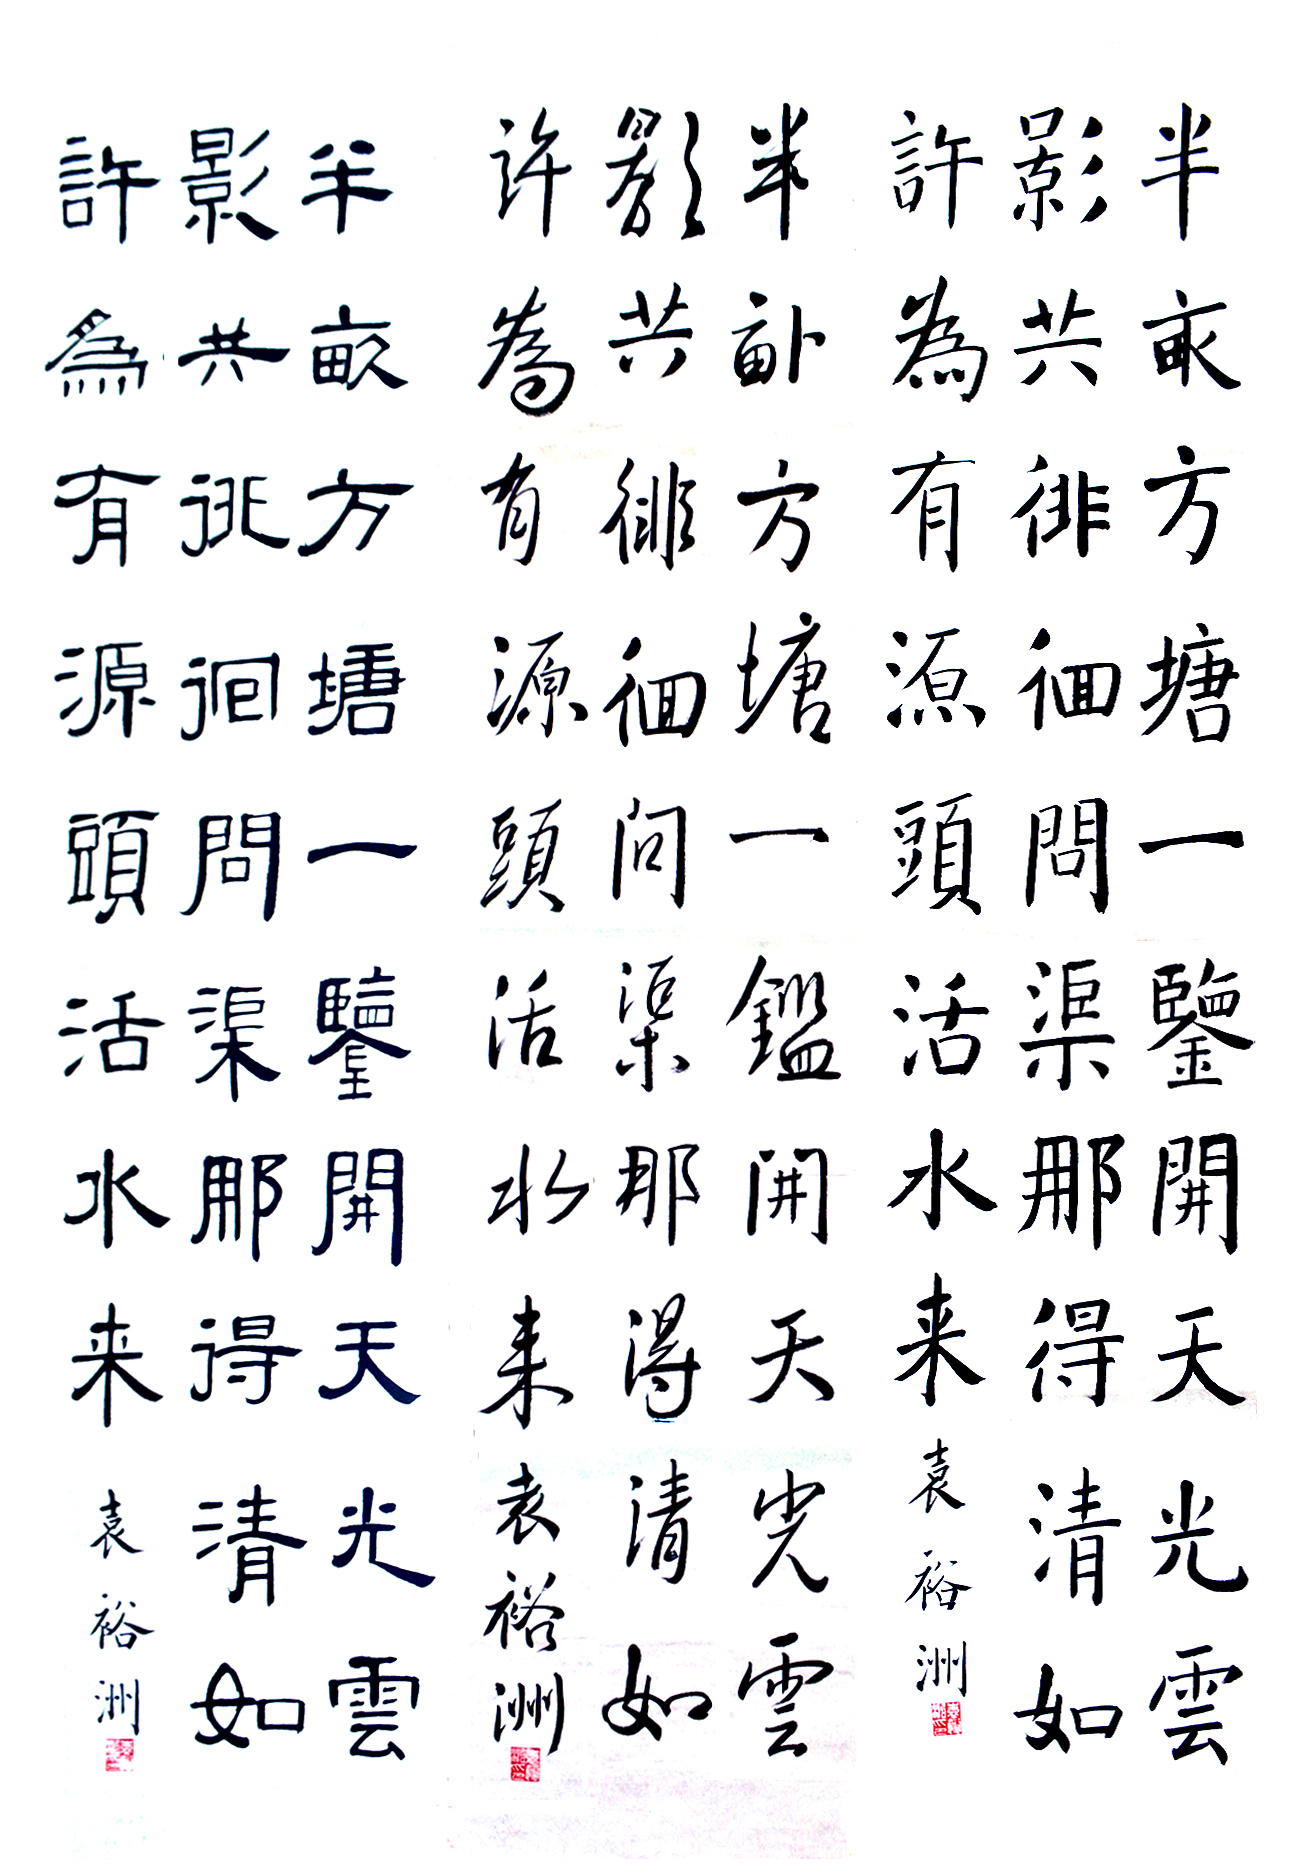 半畝方塘一鑒開天光雲
影共徘徊問渠那得清如
許為有源頭活水来
袁裕洲
半畝方塘一鑑開天光雲
影共徘徊問渠那得清如
許為有源頭活水来
袁裕洲
半畝方塘一鑒開天光雲
影共徘徊問渠那得清如
許為有源頭活水来
袁裕洲